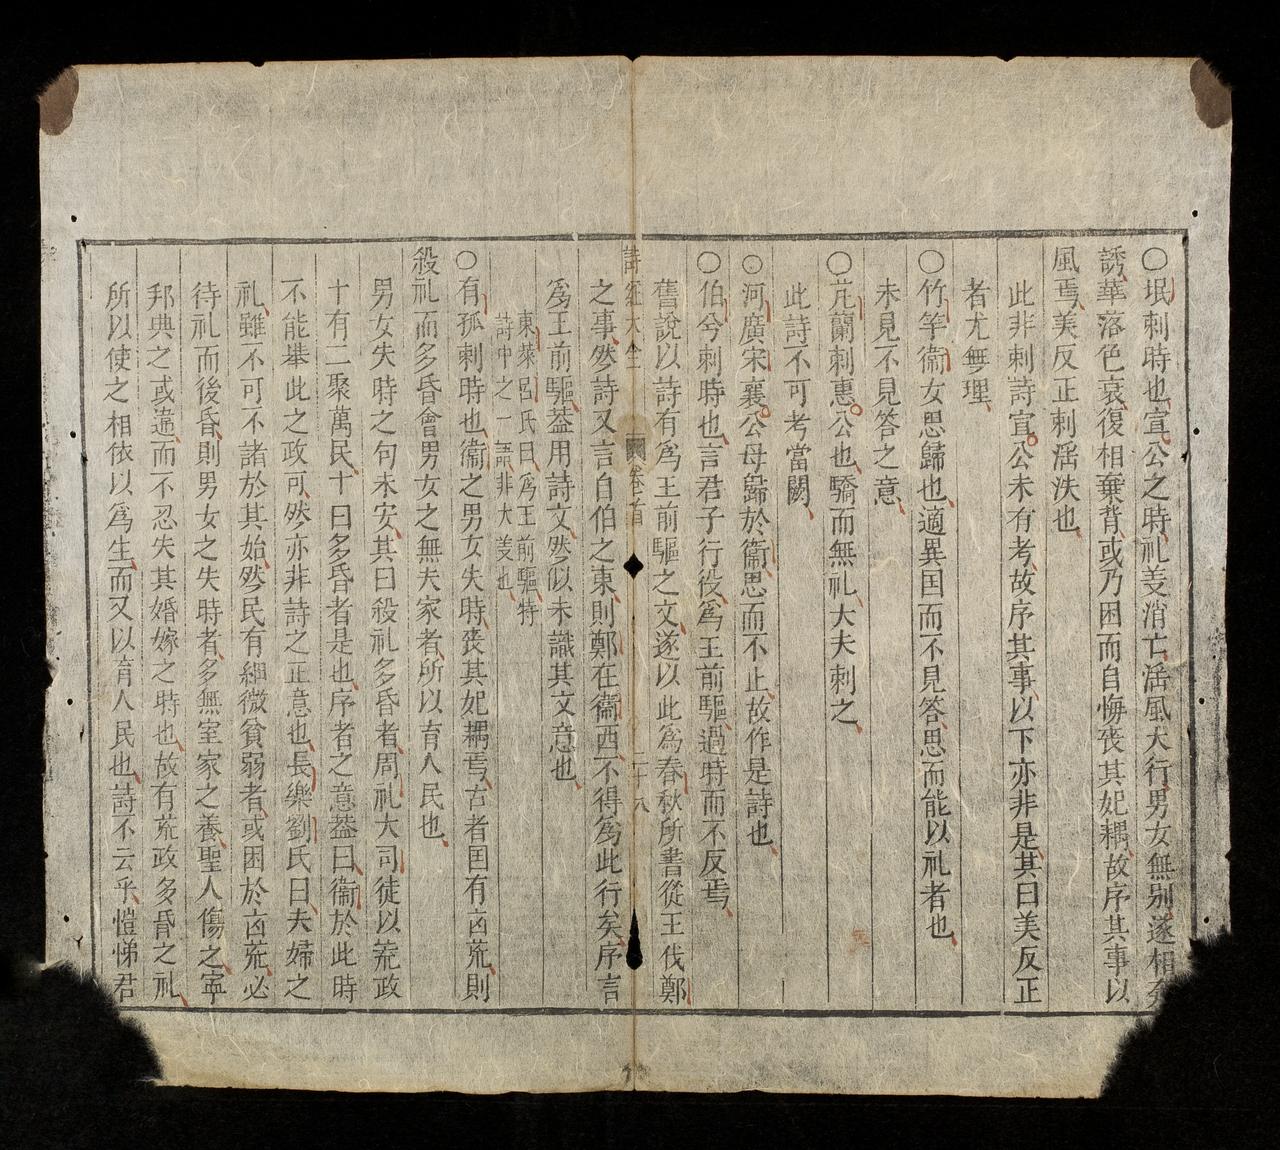 ○氓刺時也宣公之時礼义消亡淫風大行男女無别遂相奔
誘華落色衰復相棄背或乃困而自悔丧其妃耦故序其事以
風焉美反正刺淫泆也
此非刺詩宣公未有考故序其事以下亦非是其曰美反正
者尤無理
○竹竿衞女思歸也適異囯而不見答思而能以礼者也
未見不見答之意
○芄蘭刺惠公也驕而無礼大夫刺之
此詩不可考當闕
○河廣宋襄公母歸於衞思而不止故作是詩也
○伯兮刺時也言君子行役爲王前驅過時而不反焉
舊說以詩有爲王前驅之文遂以此爲春秋所書從王伐鄭
詩经大全 卷首 二十八
之事然詩又言自伯之東則鄭在衞西不得爲此行矣序言
爲王前驅盖用詩文然似未識其文意也
東萊吕氏曰爲王前驅特
詩中之一語非大义也
○有孤刺時也衞之男女失時丧其妃耦焉古者囯有凶荒則
殺礼而多昏會男女之無夫家者所以育人民也
男女失時之句未安其曰殺礼多昏者周礼大司徒以荒政
十有二聚萬民十曰多昏者是也序者之意盖曰衞於此時
不能举此之政可然亦非詩之正意也長樂劉氏曰夫婦之
礼雖不可不諸於其始然民有細微貧弱者或困於凶荒必
待礼而後昏則男女之失時者多無室家之養聖人傷之寜
邦典之或違而不忍失其婚嫁之時也故有荒政多昏之礼
所以使之相依以爲生而又以育人民也詩不云乎愷悌君